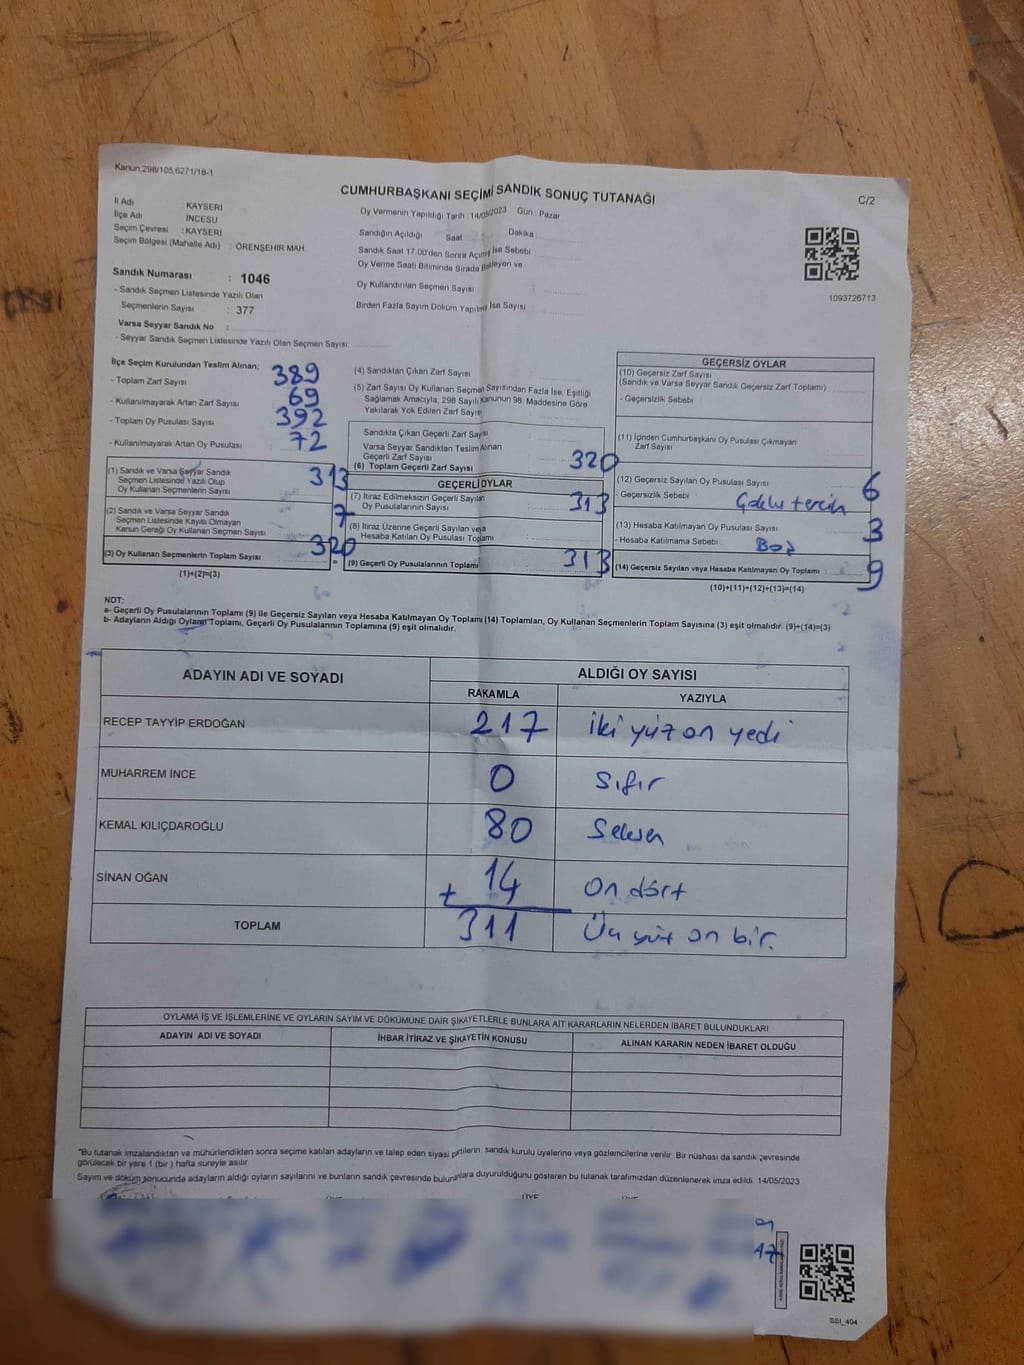 Kanun;298/105,6271/18-1
CUMHURBAŞKANI SEÇİMİ SANDIK SONUÇ TUTANAĞI
C/2
İl Adı : KAYSERİ
İlçe Adı : İNCESU
Seçim Çevresi : KAYSERİ
Seçim Bölgesi (Mahalle Adı) : ÖRENŞEHİR MAH.
Oy Vermenin Yapıldığı Tarih : 14/05/2023 Gün : Pazar
Sandığın Açıldığı Saat : Dakika :
Sandık Saat 17.00'den Sonra Açılmış İse Sebebi :
Oy Verme Saati Bitiminde Sırada Bekleyen ve
Oy Kullandırılan Seçmen Sayısı :
Birden Fazla Sayım Döküm Yapılmış İse Sayısı :
1093726713
Sandık Numarası : 1046
- Sandık Seçmen Listesinde Yazılı Olan
Seçmenlerin Sayısı : 377
Varsa Seyyar Sandık No :
- Seyyar Sandık Seçmen Listesinde Yazılı Olan Seçmen Sayısı:
İlçe Seçim Kurulundan Teslim Alınan;
- Toplam Zarf Sayısı 389
- Kullanılmayarak Artan Zarf Sayısı 69
- Toplam Oy Pusulası Sayısı 392
- Kullanılmayarak Artan Oy Pusulası 72
(1) Sandık ve Varsa Seyyar Sandık
Seçmen Listesinde Yazılı Olup
Oy Kullanan Seçmenlerin Sayısı 313
(2) Sandık ve Varsa Seyyar Sandık
Seçmen Listesinde Kayıtlı Olmayan
Kanun Gereği Oy Kullanan Seçmen Sayısı 7
(3) Oy Kullanan Seçmenlerin Toplam Sayısı 320
(1)+(2)=(3)
(4) Sandıktan Çıkan Zarf Sayısı
(5) Zarf Sayısı Oy Kullanan Seçmen Sayısından Fazla İse, Eşitliği
Sağlamak Amacıyla, 298 Sayılı Kanunun 98. Maddesine Göre
Yakılarak Yok Edilen Zarf Sayısı
Sandıkta Çıkan Geçerli Zarf Sayısı
Varsa Seyyar Sandıktan Teslim Alınan
Geçerli Zarf Sayısı
(6) Toplam Geçerli Zarf Sayısı 320
GEÇERLİ OYLAR
(7) İtiraz Edilmeksizin Geçerli Sayılan
Oy Pusulalarının Sayısı 313
(8) İtiraz Üzerine Geçerli Sayılan veya
Hesaba Katılan Oy Pusulası Toplamı
= (9) Geçerli Oy Pusulalarının Toplamı 313
GEÇERSİZ OYLAR
(10) Geçersiz Zarf Sayısı
(Sandık ve Varsa Seyyar Sandık Geçersiz Zarf Toplamı)
- Geçersizlik Sebebi :
(11) İçinden Cumhurbaşkanı Oy Pusulası Çıkmayan
Zarf Sayısı
(12) Geçersiz Sayılan Oy Pusulası Sayısı 6
- Geçersizlik Sebebi : Çoklu tercih
(13) Hesaba Katılmayan Oy Pusulası Sayısı 3
- Hesaba Katılmama Sebebi : Boş
(14) Geçersiz Sayılan veya Hesaba Katılmayan Oy Toplamı : 9
(10)+(11)+(12)+(13)=(14)
NOT:
a- Geçerli Oy Pusulalarının Toplamı (9) ile Geçersiz Sayılan veya Hesaba Katılmayan Oy Toplamı (14) Toplamları, Oy Kullanan Seçmenlerin Toplam Sayısına (3) eşit olmalıdır. (9)+(14)=(3)
b- Adayların Aldığı Oyların Toplamı, Geçerli Oy Pusulalarının Toplamına (9) eşit olmalıdır.
ADAYIN ADI VE SOYADI
ALDIĞI OY SAYISI
RAKAMLA YAZIYLA
RECEP TAYYİP ERDOĞAN 217 iki yüz on yedi
MUHARREM İNCE 0 Sıfır
KEMAL KILIÇDAROĞLU 80 Seksen
SİNAN OĞAN + 14 On dört
TOPLAM 311 Üç yüz on bir.
OYLAMA İŞ VE İŞLEMLERİNE VE OYLARIN SAYIM VE DÖKÜMÜNE DAİR ŞİKAYETLERLE BUNLARA AİT KARARLARIN NELERDEN İBARET BULUNDUKLARI
ADAYIN ADI VE SOYADI İHBAR İTİRAZ VE ŞİKAYETİN KONUSU ALINAN KARARIN NEDEN İBARET OLDUĞU
*Bu tutanak imzalandıktan ve mühürlendikten sonra seçime katılan adayların ve talep eden siyasi partilerin sandık kurulu üyelerine veya gözlemcilerine verilir. Bir nüshası da sandık çevresinde
görülecek bir yere 1 (bir) hafta süreyle asılır.
Sayım ve döküm sonucunda adayların aldığı oyların sayılarını ve bunların sandık çevresinde bulunanlara duyurulduğunu gösteren bu tutanak tarafımızdan düzenlenerek imza edildi. 14/05/2023
ÜYE ÜYE
SSI_404